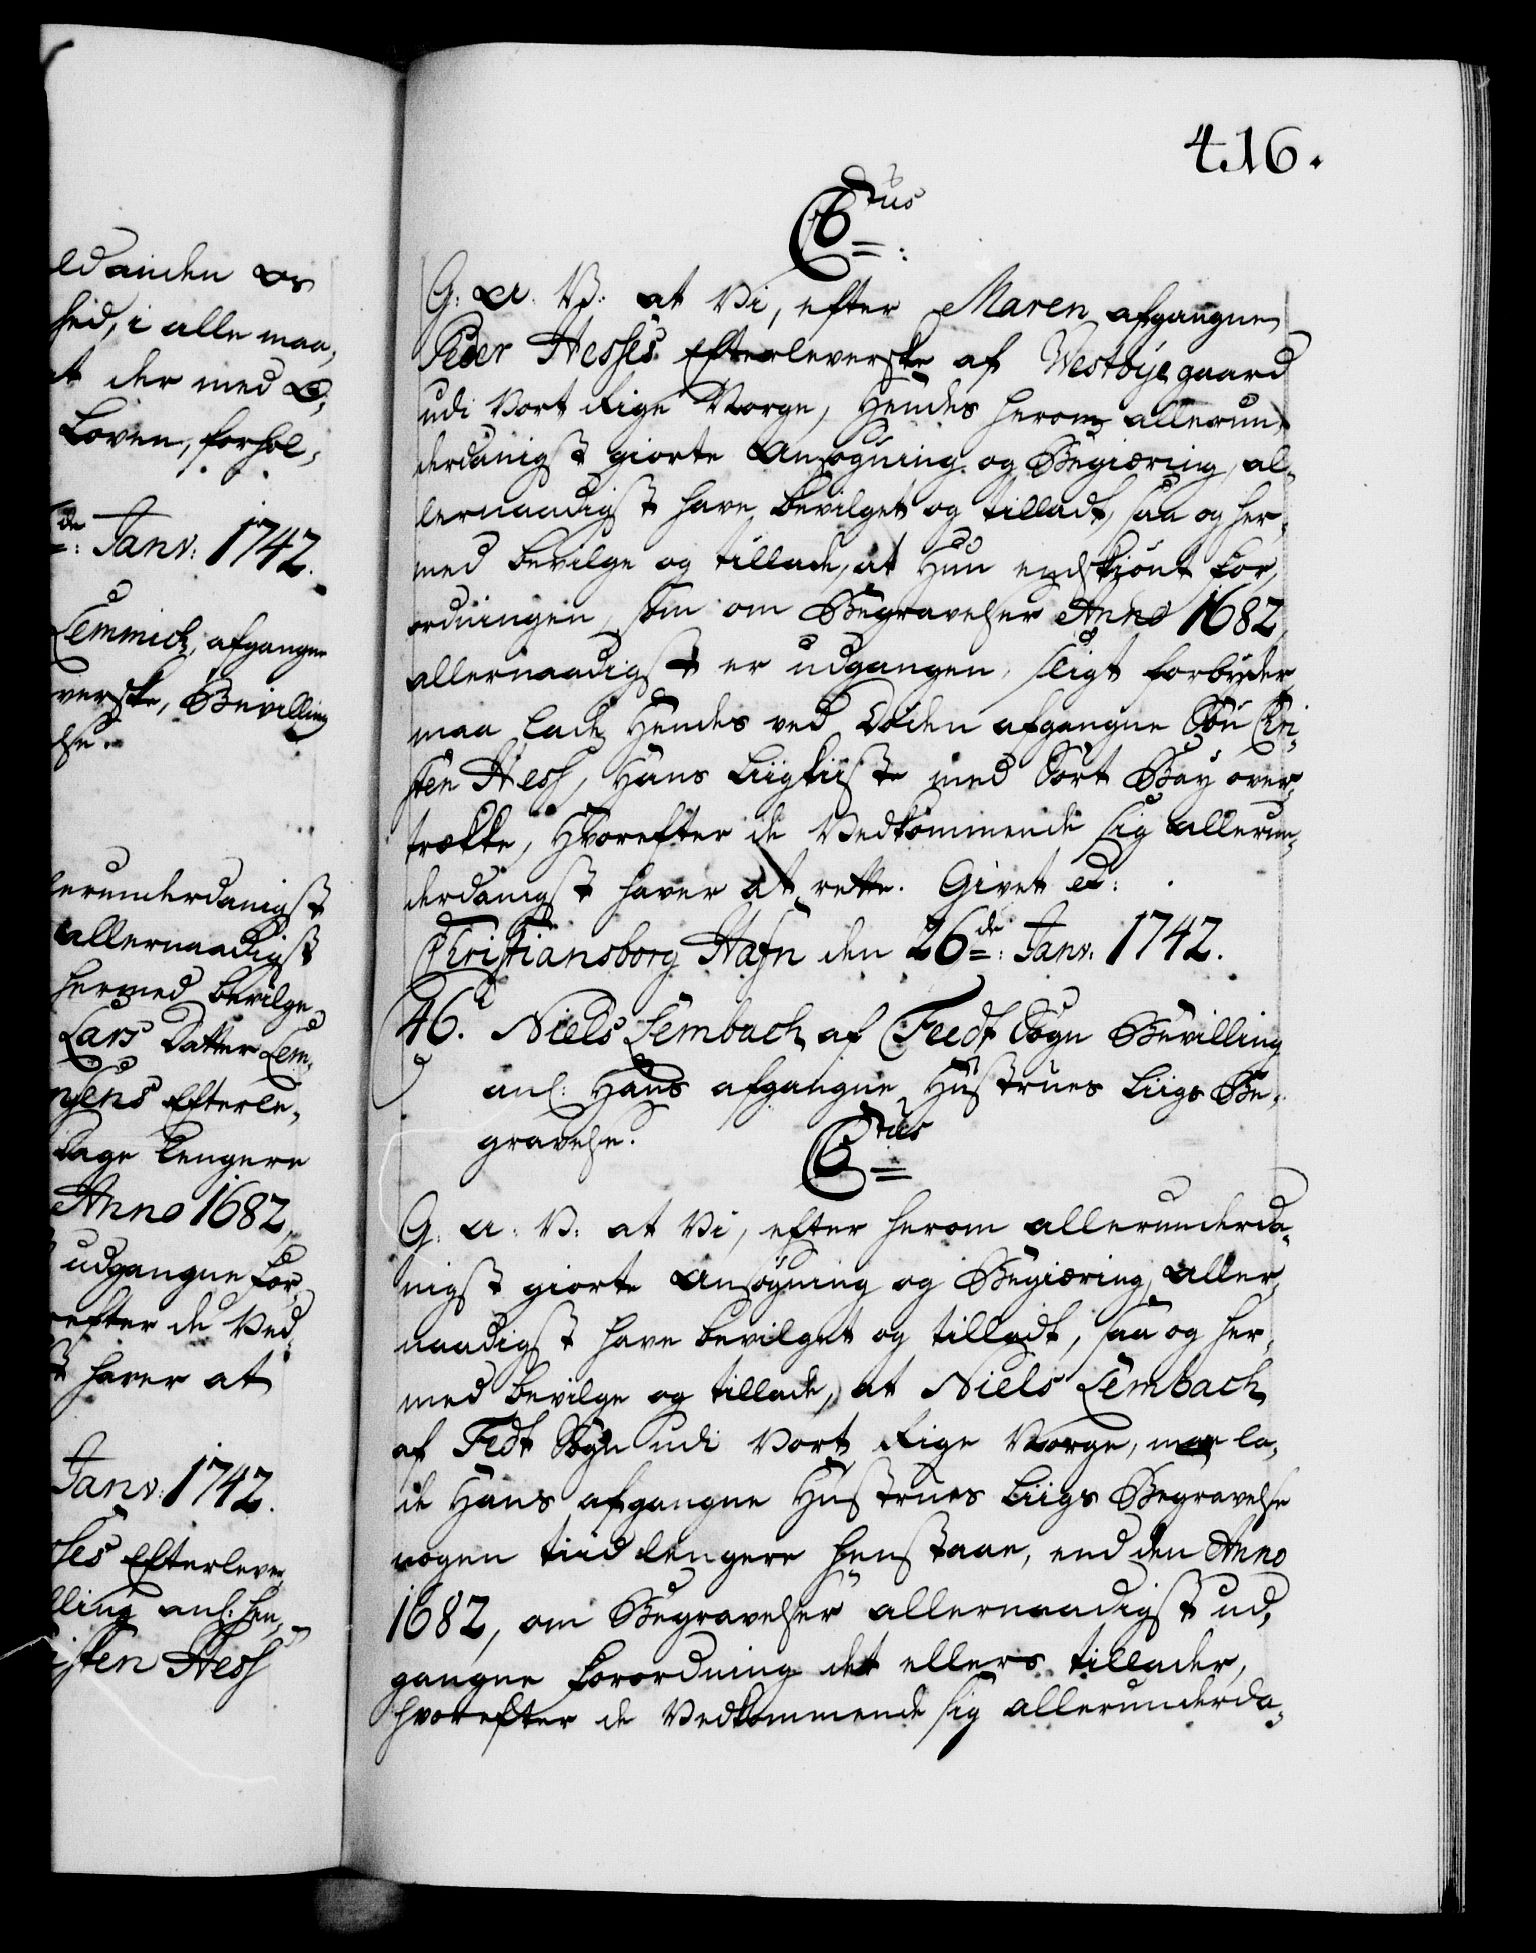 ldanden os
hed, i alle maa,
t der med D,
Loven, forhol,
de: Janv: 1742.
Lemmich, afgangne
verske, Bevilling
lse.
lerunderdanigst
allernaadigst
hermed bevilge
Lars Datter Lem,
nsens Efterle,
lage lengere
Anno 1682,
udgangne For,
refter de Ved,
st haver at
Janv: 1742.
sses Efterlever,
lling anl: hen,
isten Hess
416.
C6tus
G: A: V: at Vi, efter Maren afgangne
Peder Hesses Efterleverske af Westbye gaard
udi Vort Rige Norge, Hendes herom allerun,
derdanigst giorte Ansøgning og Begiering, al,
lernaadigst have bevilget og tilladt, saa og her,
med bevilge og tillade, at Hun endskiønt For,
ordningen, som om Begravelser Anno 1682,
allernaadigst er udgangen, sligt forbyder
maa lade Hendes ved Døden afgangne Søn Chri,
sten Hess, Hans Liigkiiste med Sort Bay over,
trække, Hvorefter de Vedkommende sig allerun,
derdanigst haver at rette. Givet &:
Christiansborg Hafn den 26de: Janv: 1742.
46. Niels Lembach af Feedt Sogn Bevilling
anl: Hans afgangne Hustrues Liigs Be,
gravelse.
C6tus
G: A: V: at Vi, efter herom allerunderda,
nigst giorte Ansøgning og Begiering, Aller,
naadigst have bevilget og tilladt, saa og her,
med bevilge og tillade, at Niels Lembach
af Fedt Sogn udi Vort Rige Norge, maa la,
de Hans afgangne Hustrues Liigs Begravelse
nogen tiid lengere henstaae, end den Anno
1682, om Begravelser allernaadigst ud,
gangne Forordning det ellers tillader,
hvorefter de Vedkommende sig allerunderda,